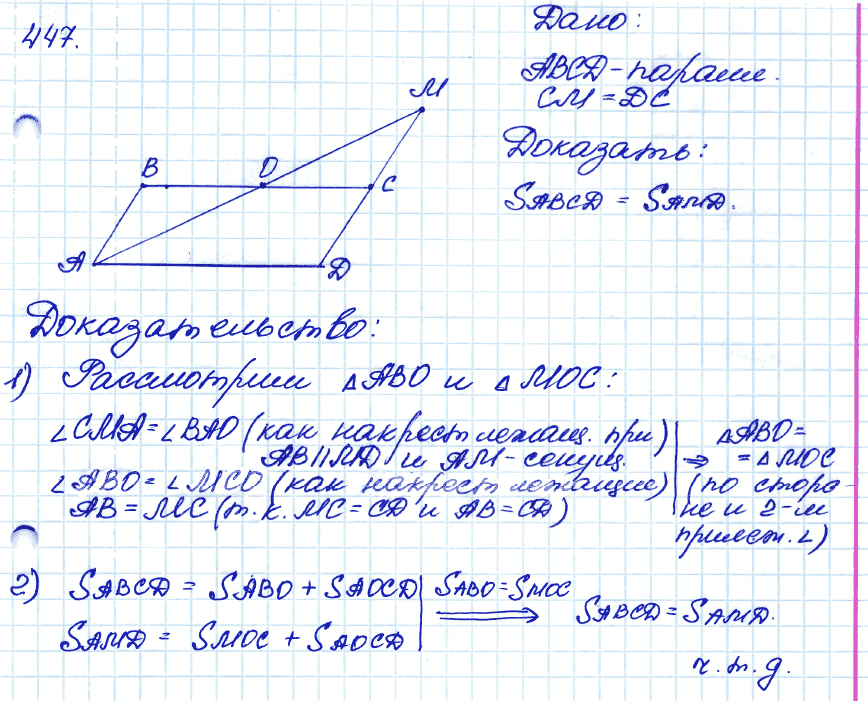 447.
Дано:
ABCD - паралл.
CM = DC
Доказать:
SABCD = SAMD.
M
B O C
A D
Доказательство:
1) Рассмотрим △ABO и △MOC:
∠CMA = ∠BAO (как накрест лежащ. при)
AB || MD и AM - секущ.
∠ABO = ∠MCO (как накрест лежащие)
AB = MC (т. к. MC = CD и AB = CD)
⇒ △ABO =
= △MOC
(по сторо-
не и 2-м
прилеж. ∠)
2) SABCD = SABO + SAOCD
SAMD = SMOC + SAOCD
SABO = SMOC
⇒ SABCD = SAMD.
ч. т. д.